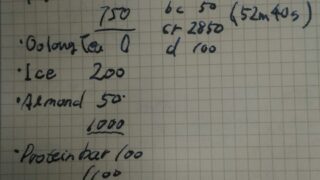 750
· Oolong Tea 0
· Ice 200
· Almond 50
1000
· Protein bar 100
1100
bc 50 (52m40s)
cr 2850
d 100